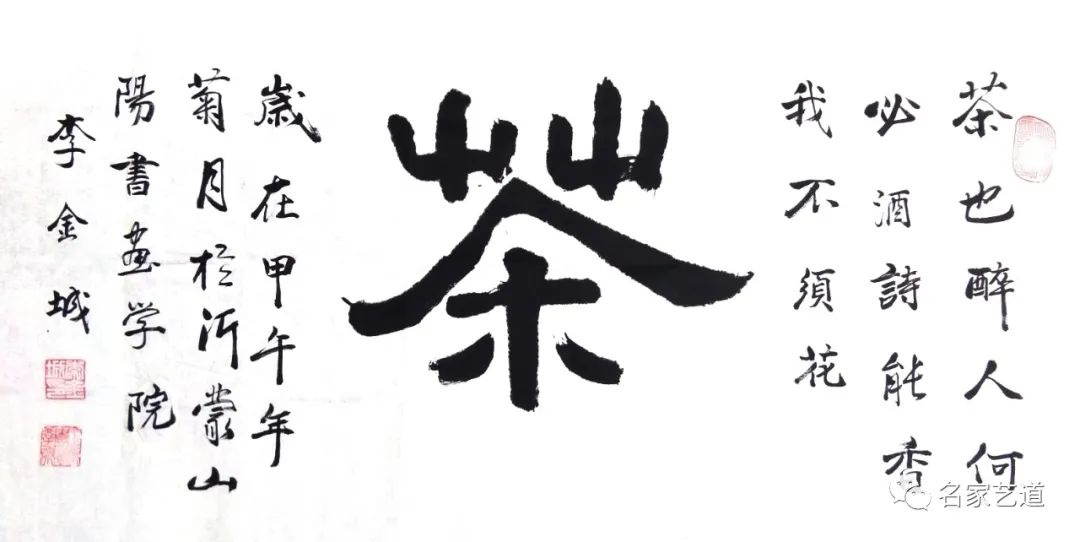 茶也醉人何
必酒詩能香
我不須花
茶
歲在甲午年
菊月於沂蒙山
陽書畫学院
李金城
名家艺道